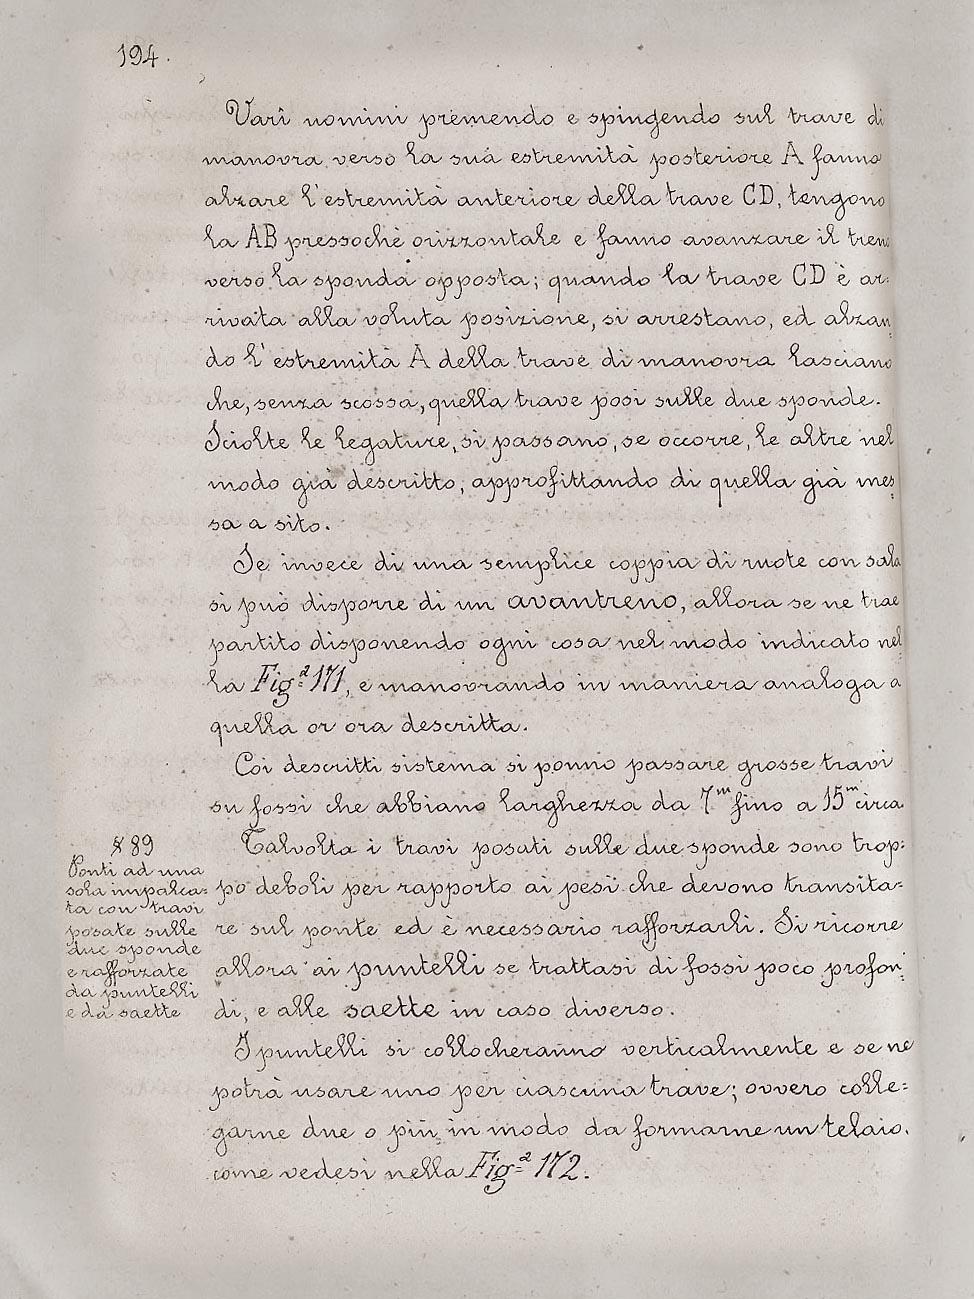 194.
Varî uomini premendo e spingendo sul trave di
manovra verso la sua estremità posteriore A fanno
alzare l'estremità anteriore della trave CD, tengono
la AB pressochè orizzontale e fanno avanzare il treno
verso la sponda opposta; quando la trave CD è ar:
rivata alla voluta posizione, si arrestano, ed alzan:
do l'estremità A della trave di manovra lasciano
che, senza scossa, quella trave posi sulle due sponde.
Sciolte le legature, si passano, se occorre, le altre nel
modo già descritto, approfittando di quella già mes:
sa a sito.
Se invece di una semplice coppia di ruote con sala
si può disporre di un avantreno, allora se ne trae
partito disponendo ogni cosa nel modo indicato nel:
la Fig.ª 171, e manovrando in maniera analoga a
quella or ora descritta.
Coi descritti sistema si ponno passare grosse travi
su fossi che abbiano larghezza da 7m fino a 15m circa.
§ 89
Ponti ad una
sola impalca:
ta con travi
posate sulle
due sponde
e rafforzate
da puntelli
e da saette
Talvolta i travi posati sulle due sponde sono trop:
po deboli per rapporto ai pesi che devono transita:
re sul ponte ed è necessario rafforzarli. Si ricorre
allora ai puntelli se trattasi di fossi poco profon:
di, e alle saette in caso diverso.
I puntelli si collocheranno verticalmente e se ne
potrà usare uno per ciascuna trave; ovvero colle:
garne due o più in modo da formarne un telaio.
come vedesi nella Fig.ª 172.